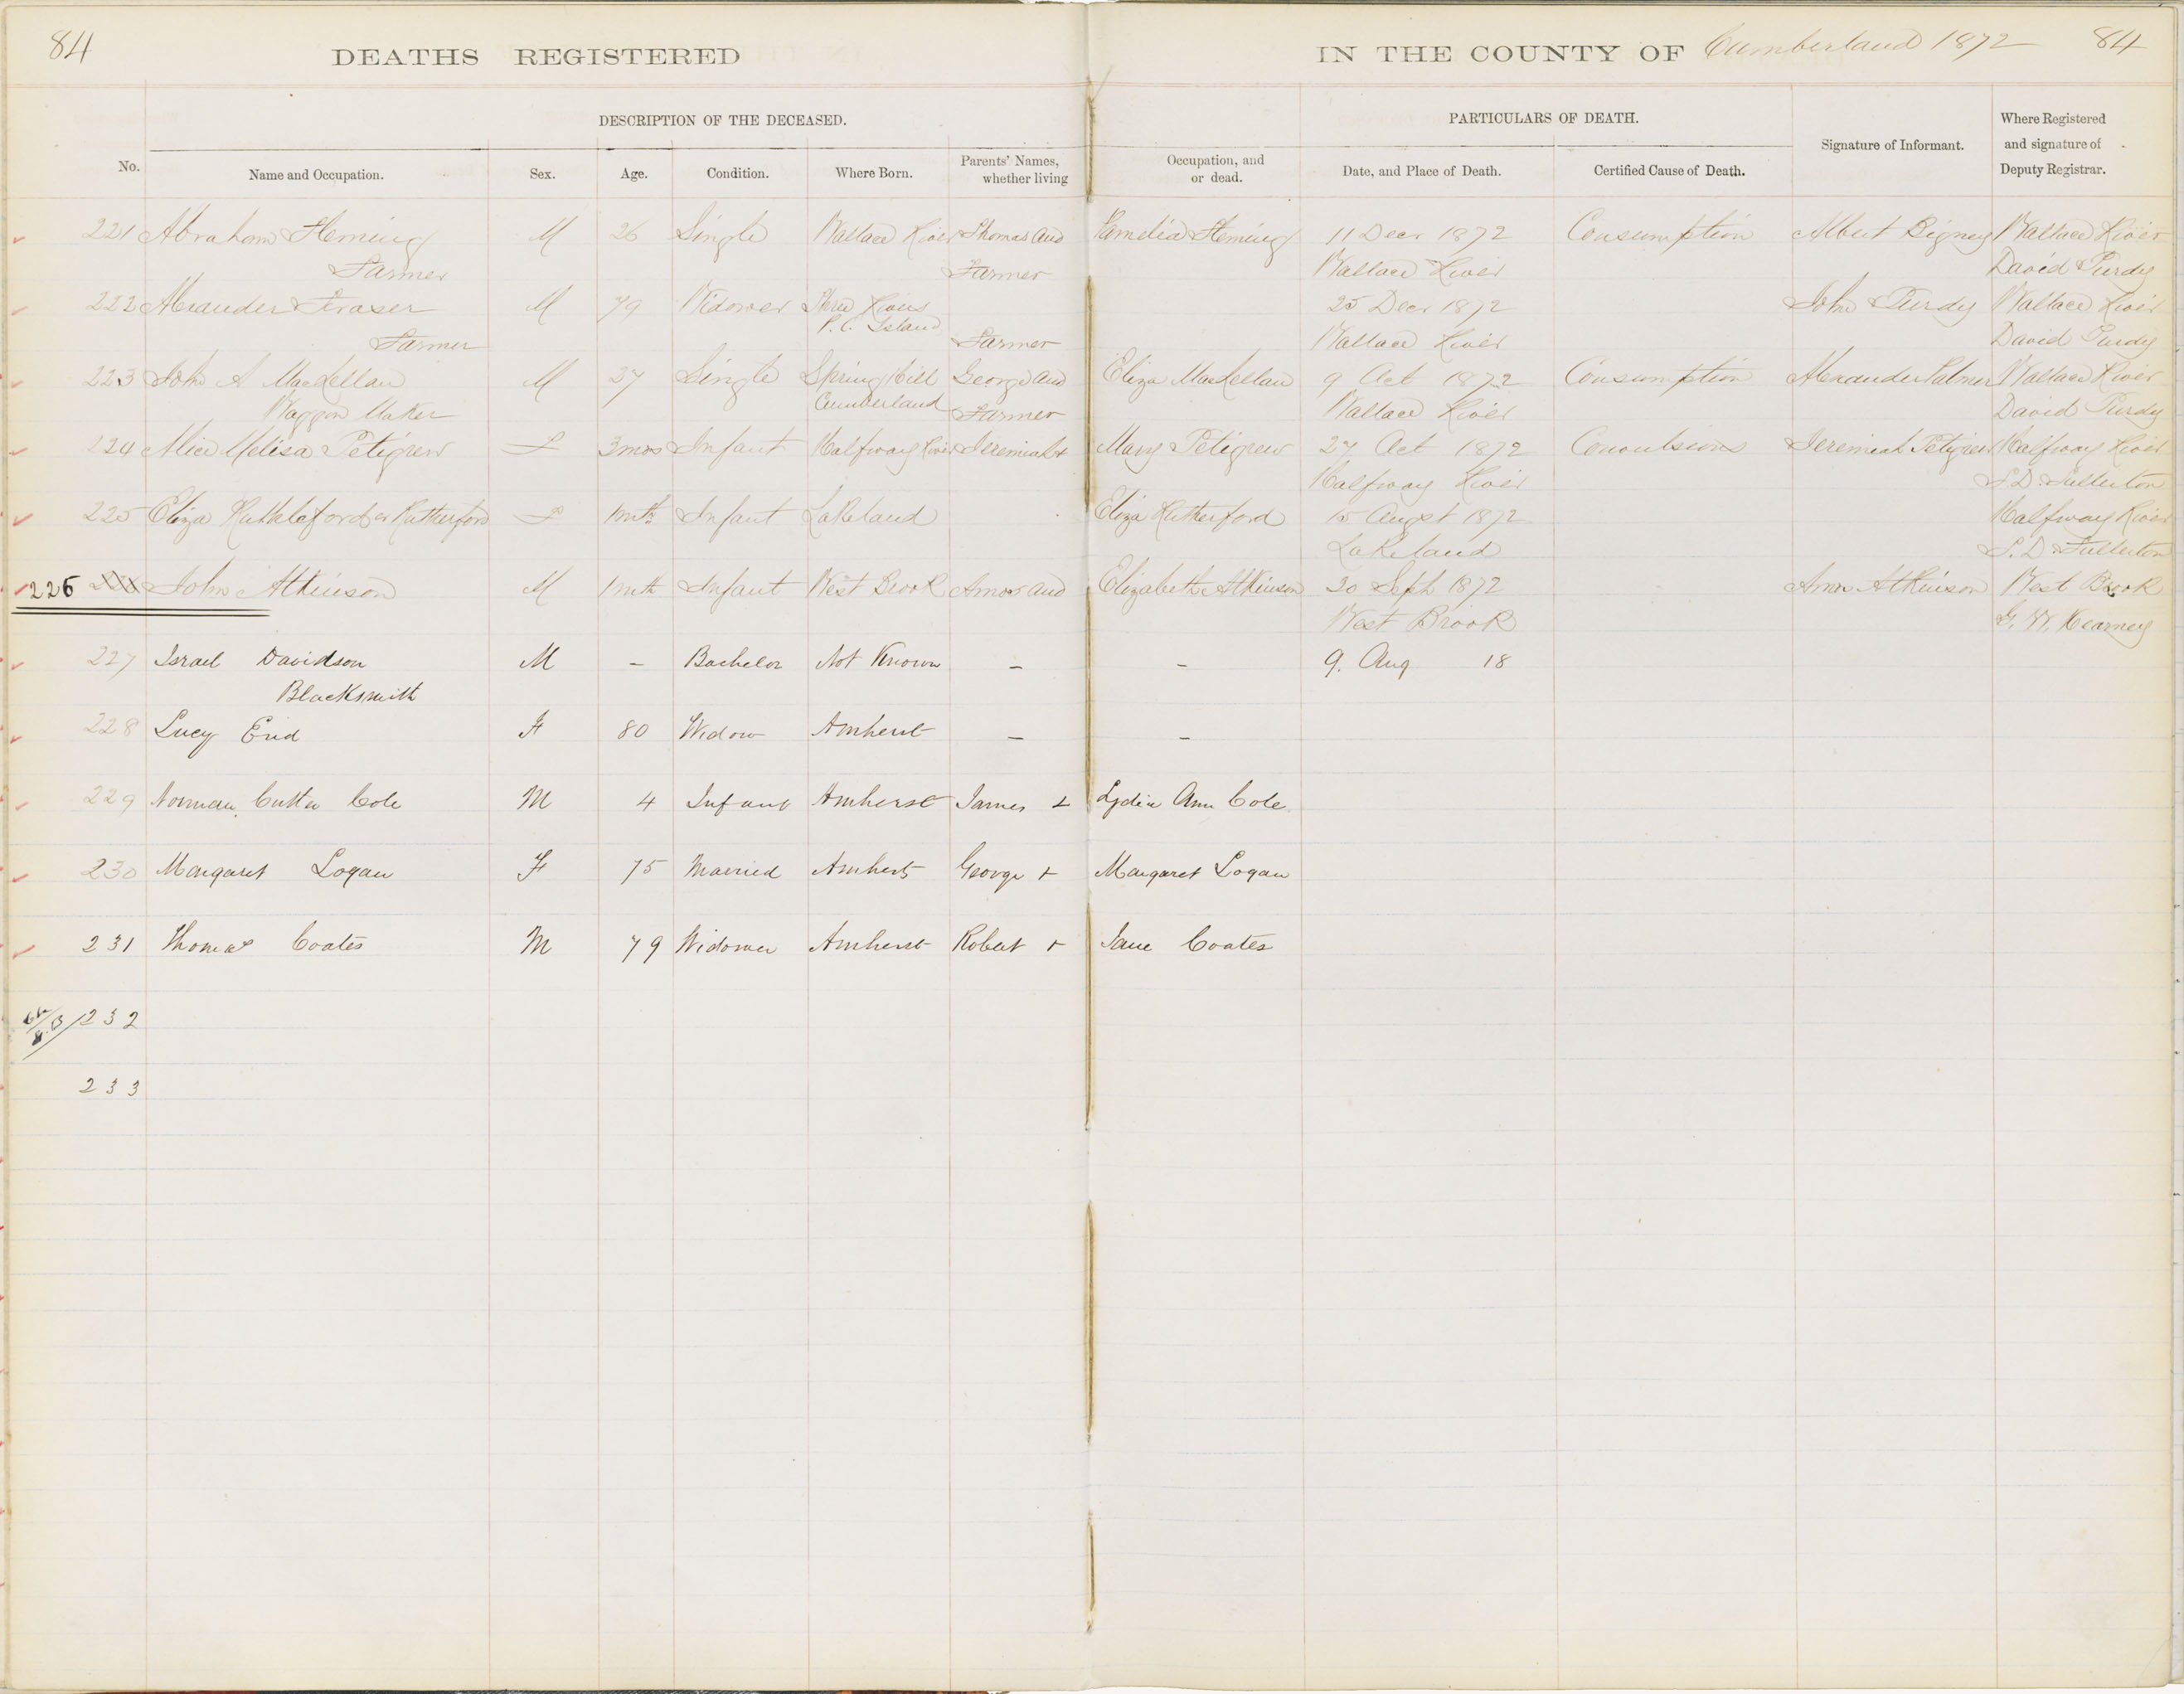 84
DEATHS REGISTERED IN THE COUNTY OF Cumberland 1872
84
DESCRIPTION OF THE DECEASED. PARTICULARS OF DEATH.
No. Name and Occupation. Sex. Age. Condition. Where Born. Parents' Names, whether living Occupation, and or dead. Date, and Place of Death. Certified Cause of Death. Signature of Informant. Where Registered and signature of Deputy Registrar.
221 Abraham Fleming M 26 Single Wallace River Thomas and Pamelia Fleming 11 Decr 1872 Consumption Albert Bigney Wallace River
Farmer Farmer Wallace River David Purdy
222 Alexander Fraser M 79 Widower Three Rivers 25 Decr 1872 John Purdy Wallace River
P. E. Island
Farmer Farmer Wallace River David Purdy
223 John A MacLellan M 27 Single Spring Hill George and Eliza MacLellan 9 Oct 1872 Consumption Alexander Palmer Wallace River
Waggon Maker Cumberland Farmer Wallace River David Purdy
224 Alice Melisa Petigrew F 3mos Infant Halfway River Jeremiah & Mary Petigrew 27 Oct 1872 Convulsions Jeremiah Petigrew Halfway River
Halfway River S. D. Fullerton
225 Eliza Huttleford or Rutherford F 1mth Infant Lakeland Eliza Rutherford 15 Augst 1872 Halfway River
Lakeland S. D Fullerton
226 John Atkinson M 1mth Infant West Brook Amos and Elizabeth Atkinson 20 Seph 1872 Amos Atkinson West Brook
West Brook G. W. Kearney
227 Israel Davidson M - Bachelor Not Known - - 9. Aug 18
Blacksmith
228 Lucy F 80 Widow Amherst - -
229 Norman Cutten Cole M 4 Infant Amherst James & Lydia Ann Cole
230 Margaret Logan F 75 Married Amherst George + Margaret Logan
231 Thomas Coates M 79 Widower Amherst Robert + Jane Coates
232
233